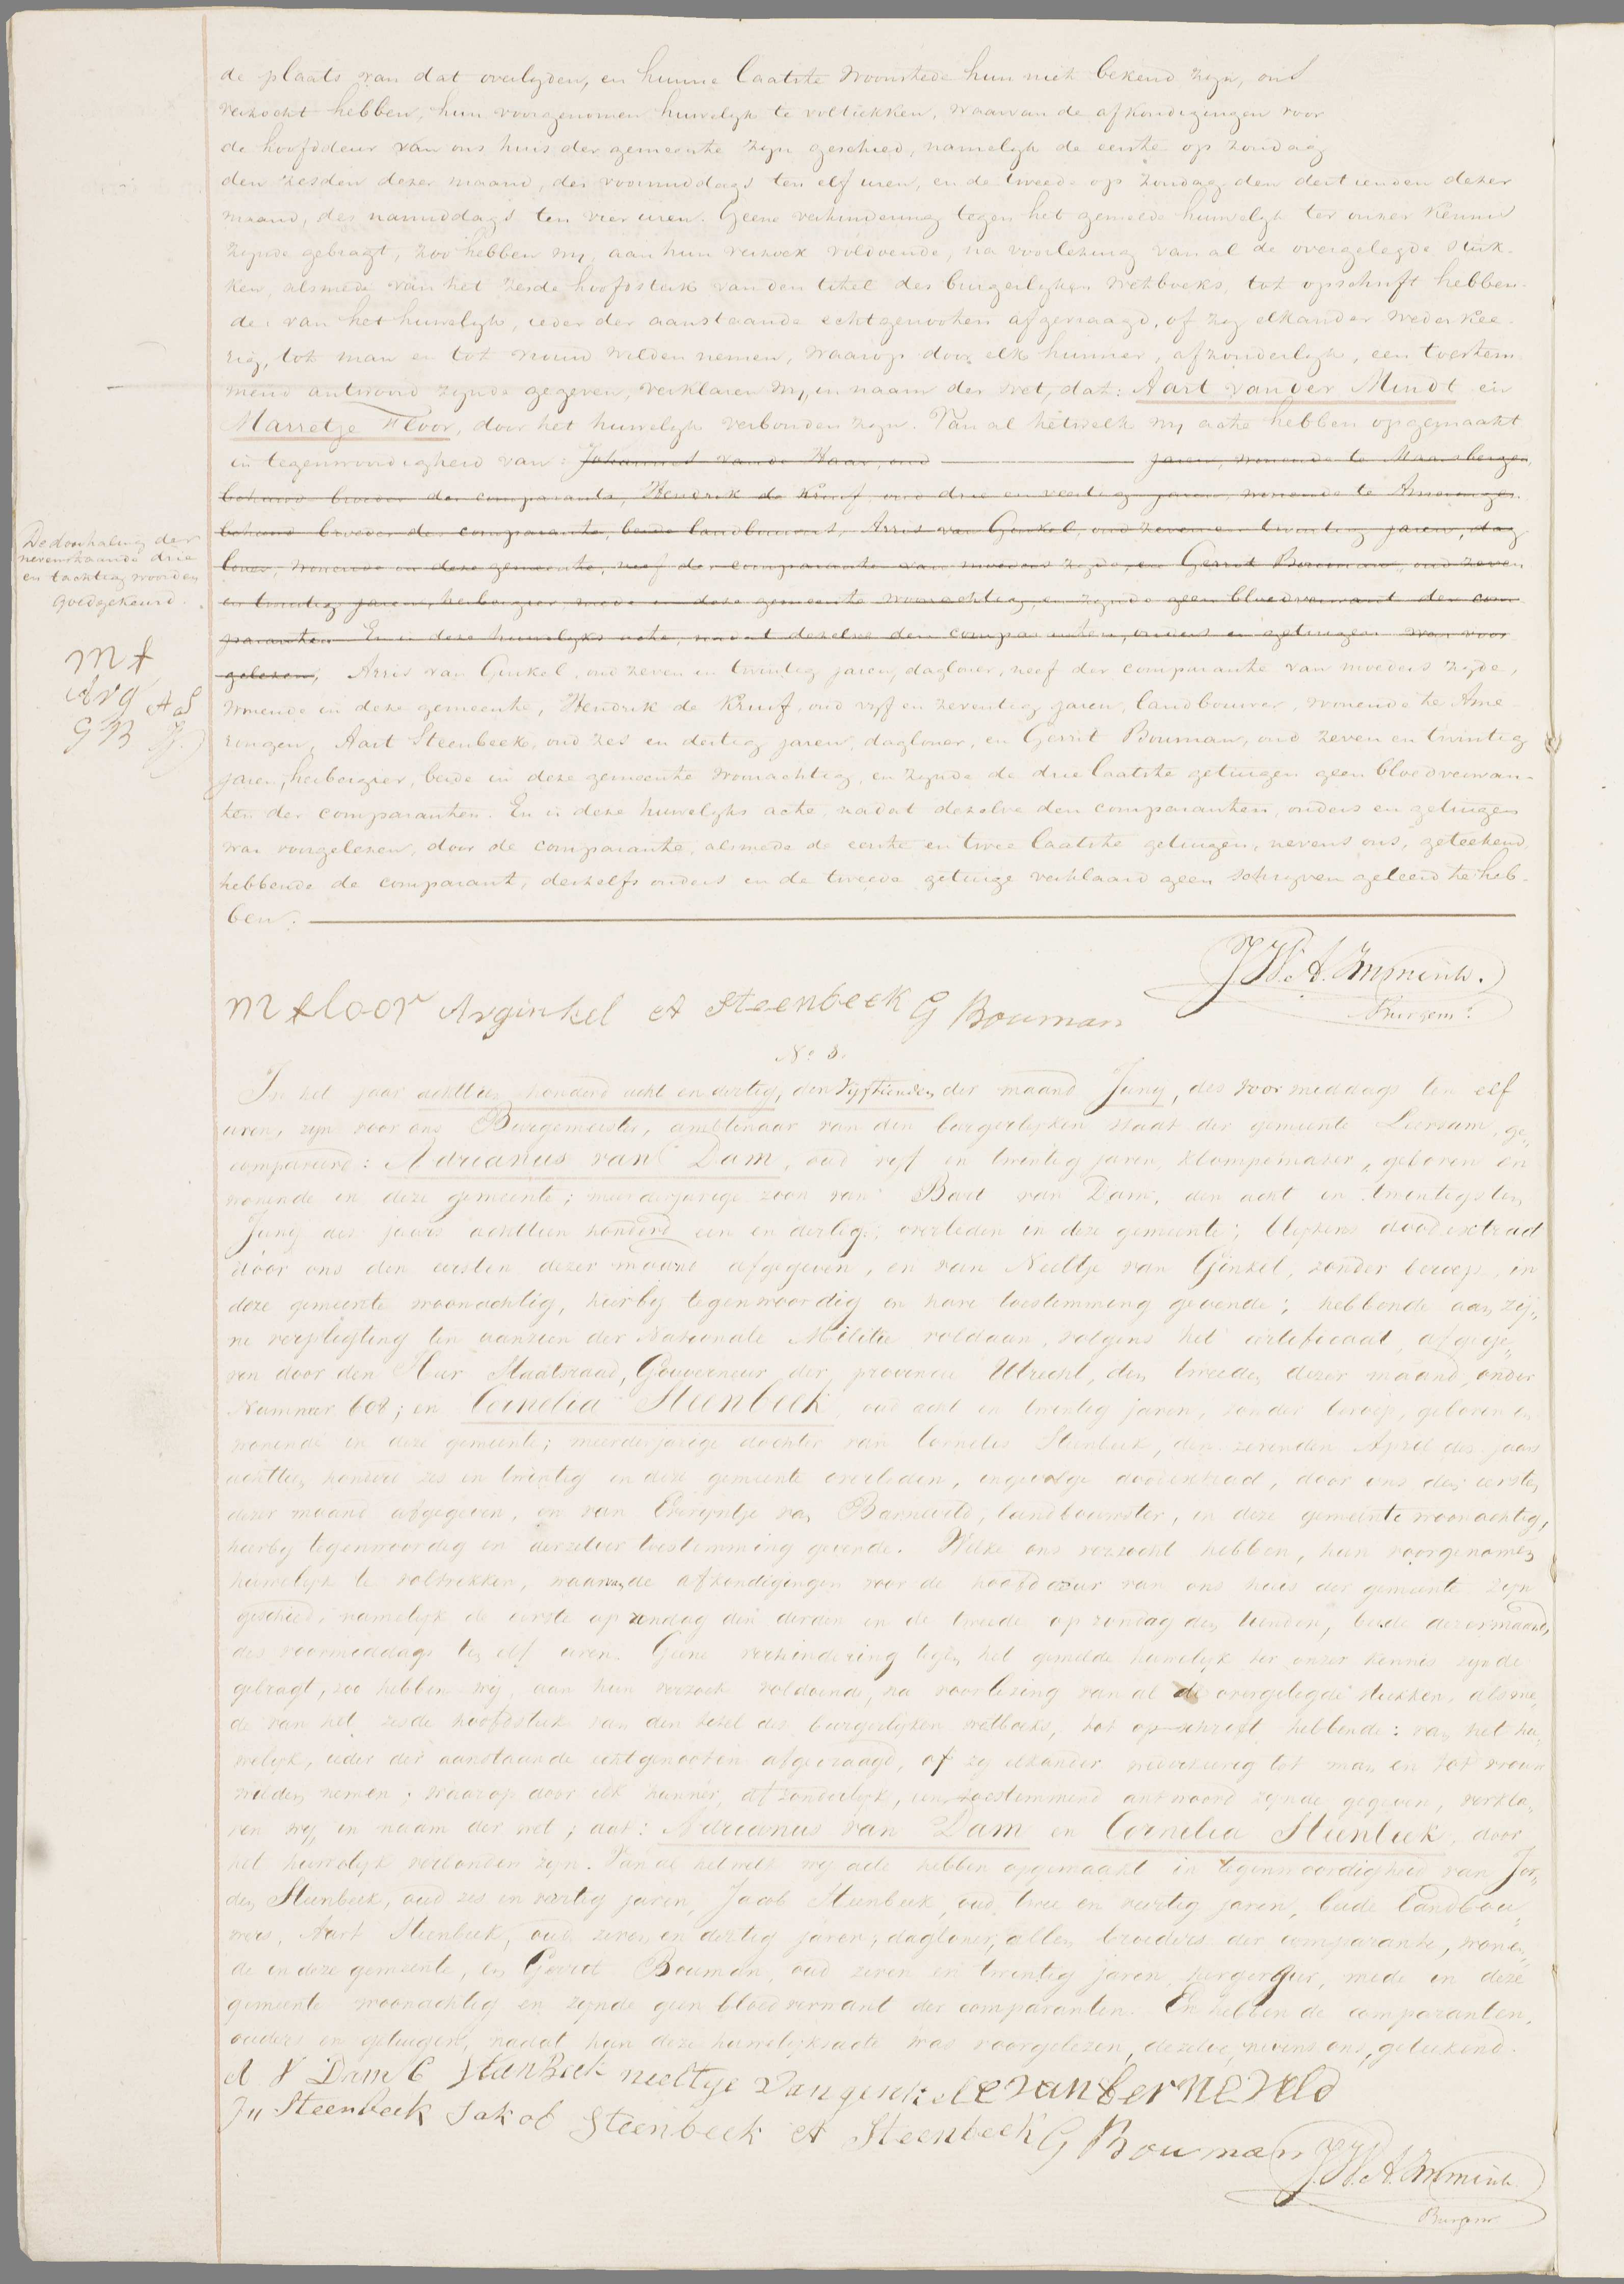 de plaats van dat overlyden, en hunne laatste woonstede hun niet bekend zyn, ons
verzocht hebben, hun voorgenomen huwelyk te voltrekken, waarvan de afkondigingen voor
de hoofddeur van ons huis der gemeente zyn geschied, namelyk de eerste op zondag
den zesden dezer maand, des voormiddags ten elf uren, en de tweede op zondag den dertienden dezer
maand, des namiddags ten vier uren. Geene verhindering tegen het gemelde huwelyk ter onzer kennis
zynde gebragt, zoo hebben wy, aan hun verzoek voldoende, na voorlezing van al de overgelegde stuk-
ken, alsmede van het zesde hoofdstuk van den titel des burgerlyken wetboeks, tot opschrift hebben-
de: van het huwelyk, ieder der aanstaande echtgenooten afgevraagd, of zy elkander wederkee-
rig, tot man en tot vrouw wilden nemen, waarop door elk hunner, afzonderlyk, een toestem-
mend antwoord zynde gegeven, verklaren wy, in naam der wet, dat: Aart van der Mindt en
Marretje Floor, door het huwelyk verbonden zyn. Van al hetwelk wy acte hebben opgemaakt
in tegenwoordigheid van: Johannes van de Haar, oud jaren, wonende te Maarsbergen,
behuwd broeder der comparante, Hendrik de Kruif, oud drie en veertig jaren, wonende te Amerongen
behuwd broeder der comparante, beide landbouwers, Arris van Ginkel, oud zeven en twintig jaren, dag
loner, wonende in deze gemeente, neef der comparante van moeders zyde, en Gerrit Bouman, oud zeven
en twintig jaren, herbergier, mede in deze gemeente woonachtig, en zynde geen bloedverwant der com
paranten. En is deze huwelyks acte, nadat dezelve den comparanten, ouders en getuigen was voor
gelezen, Arris van Ginkel, oud zeven en twintig jaren, dagloner, neef der comparante van moeders zyde,
wonende in deze gemeente, Hendrik de Kruif, oud vyf en zeventig jaren, landbouwer, wonende te Ame
rongen, Aart Steenbeek, oud zes en dertig jaren, dagloner, en Gerrit Bouman, oud zeven en twintig
jaren, herbergier, beide in deze gemeente woonachtig, en zynde de drie laatste getuigen geen bloedverwan-
ten der comparanten. En is deze huwelyks acte, nadat dezelve den comparanten, ouders en getuigen
was voorgelezen, door de comparante, alsmede de eerste en twee laatste getuigen, nevens ons, geteekend,
hebbende de comparant, deszelfs ouders en de tweede getuige verklaard geen schryven geleerd te heb-
ben.
De doorhaling der
nevenstaande drie
en tachtig woorden
goedgekeurd.
M f
Arg A S
G B
J. H. A. Immink.
Burgem.r
M floor Arginkel A Steenbeek G Bouman
No 8.
In het jaar achttien honderd acht en dertig, den vyftienden der maand Juny, des voormiddags ten elf
uren, zyn voor ons Burgemeester, ambtenaar van den burgerlyken staat der gemeente Leersum, ge„
compareerd: Adrianus van Dam, oud vyf en twintig jaren, klompemaker, geboren en
wonende in deze gemeente; meerderjarige zoon van Bart van Dam, den acht en twintigsten
Juny des jaars achttien honderd een en dertig, overleden in deze gemeente; blykens dood extract
door ons den eersten dezer maand afgegeven, en van Neeltje van Ginkel, zonder beroep, in
deze gemeente woonachtig, hierby tegenwoordig en hare toestemming gevende; hebbende aan zy„
ne verpligting ten aanzien der Nationale Militie voldaan, volgens het certificaat, afgege„
ven door den Heer Staatsraad, Gouverneur der provincie Utrecht, den tweeden dezer maand, onder
Nummer 602; en Cornelia Steenbeek, oud acht en twintig jaren, zonder beroep, geboren en
wonende in deze gemeente; meerderjarige dochter van Cornelis Steenbeek, den zevenden April des jaars
achttien honderd zes en twintig in deze gemeente overleden, ingevolge doodextract, door ons den eersten
dezer maand afgegeven, en van Evertje van Barneveld, landbouwster, in deze gemeente woonachtig,
hierby tegenwoordig en derzelver toestemming gevende. Welke ons verzocht hebben, hun voorgenomen
huwelyk te voltrekken, waarvan de afkondigingen voor de hoofddeur van ons huis der gemeente zyn
geschied, namelyk de eerste op zondag den derden en de tweede op zondag den tienden, beide dezer maand,
des voormiddags ten elf uren. Geene verhindering tegen het gemelde huwelyk ter onzer kennis zynde
gebragt, zoo hebben wy, aan hun verzoek voldoende, na voorlezing van al de overgelegde stukken, alsme„
de van het zesde hoofdstuk van den titel des burgerlyken wetboeks, tot opschrift hebbende: van het hu„
welyk, ieder der aanstaande echtgenooten afgevraagd, of zy elkander wederkeerig tot man en tot vrouw
wilden nemen; waarop door elk hunner, afzonderlyk, een toestemmend antwoord zynde gegeven, verkla„
ren wy, in naam der wet; dat: Adrianus van Dam en Cornelia Steenbeek, door
het huwelyk verbonden zyn. Van al hetwelk wy acte hebben opgemaakt in tegenwoordigheid van Jor„
den Steenbeek, oud zes en veertig jaren, Jacob Steenbeek, oud twee en veertig jaren, beide landbou„
wers, Aart Steenbeek, oud zeven en dertig jaren, dagloner, allen broeders der comparante, wonen„
de in deze gemeente, en Gerrit Bouman, oud zeven en twintig jaren, hergergier, mede in deze
gemeente woonachtig en zynde geen bloedverwant der comparanten. En hebben de comparanten,
ouders en getuigen, nadat hun deze huwelyksacte was voorgelezen, dezelve, nevens ons, geteekend.
A V Dam C SteenBeek neeltje van genkel e van berneveld
Jn Steenbeek Jakob Steenbeek A Steenbeek G Bouman
J. H. A. Immink.
Burgemr